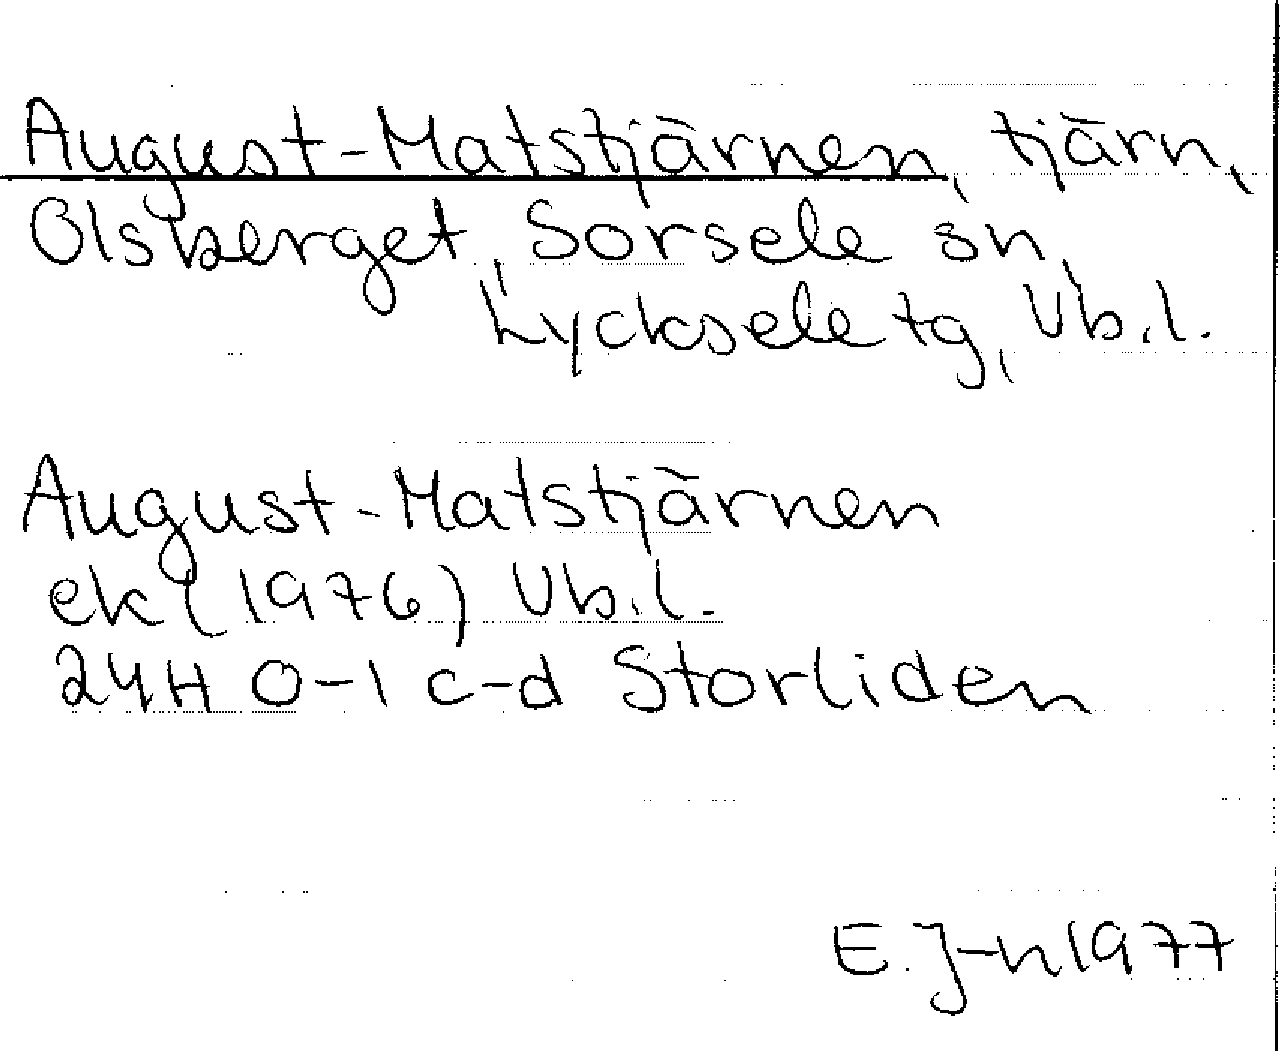 August-Matstjärnen, tjärn,
Olsberget, Sorsele sn,
Lycksele tg, Vb.l.
August-Matstjärnen
ek (1976) Vb.l.
24H 0-1 c-d Storliden
E. J-n 1977